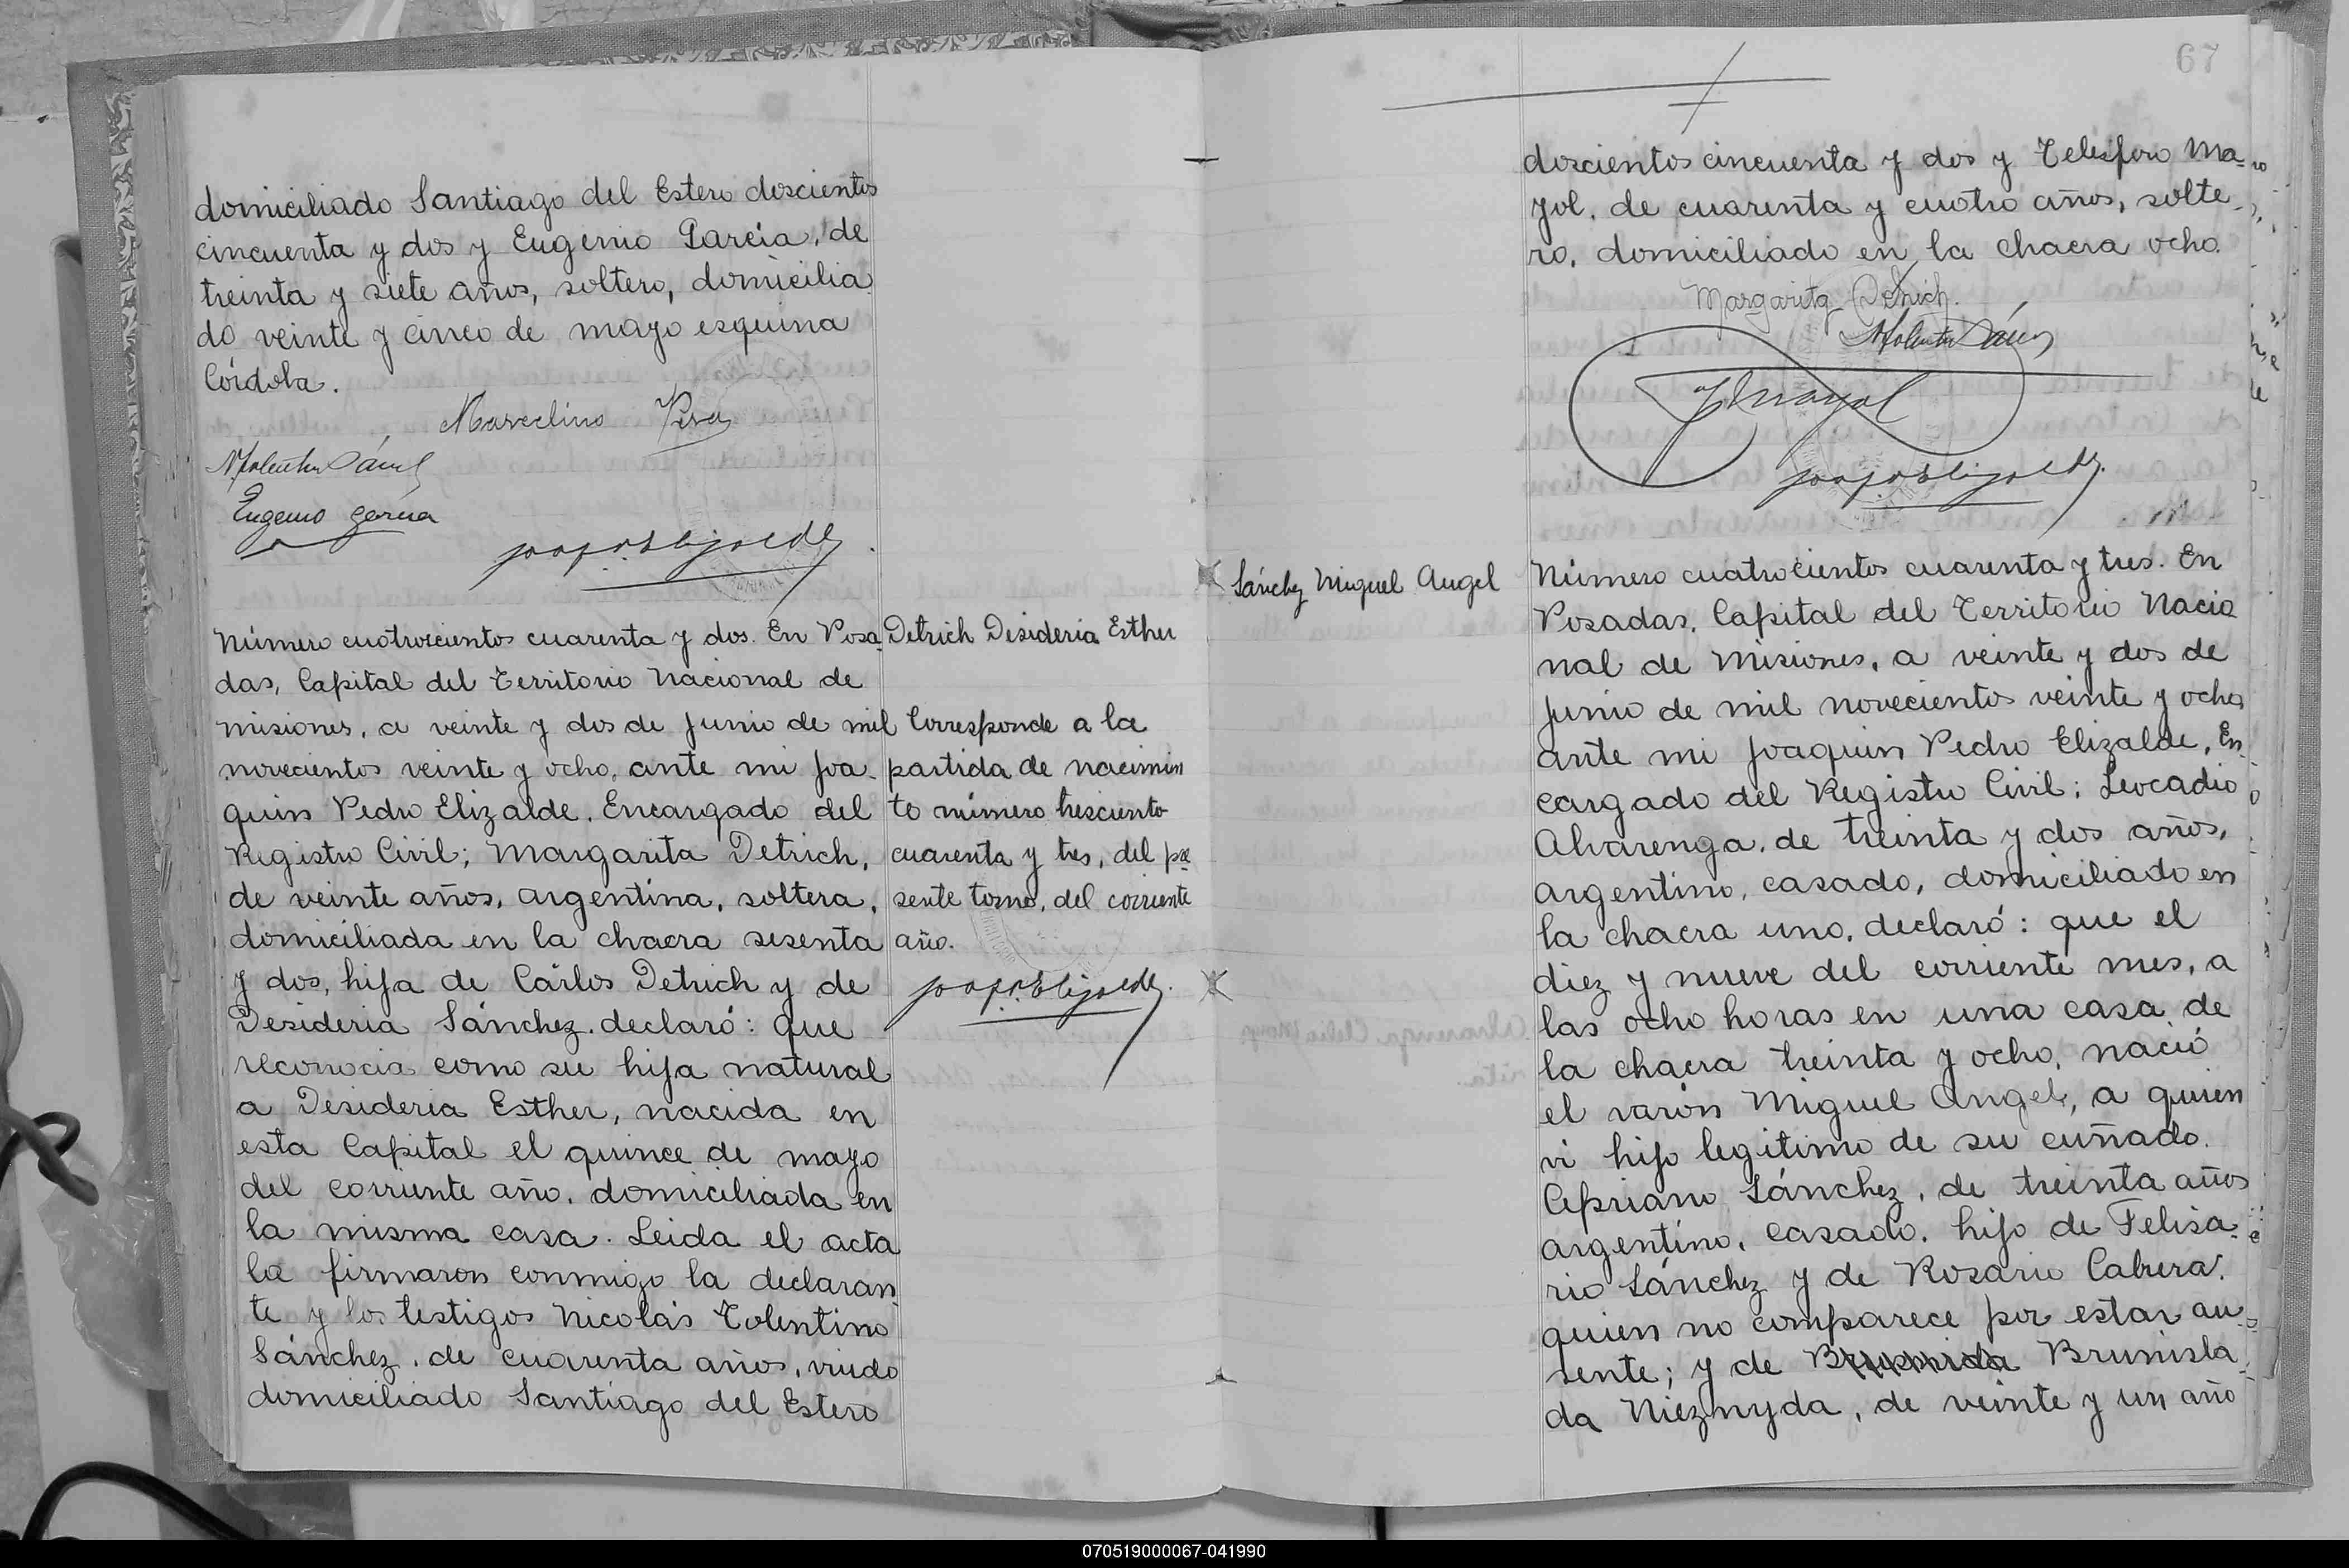 domiciliado Santiago del Estero doscientos
cincuenta y dos y Eugenio García, de
treinta y siete años, soltero, domicilia
do veinte y cinco de mayo esquina
Córdoba.
Marcelino
Eugenio García
Número cuatrocientos cuarenta y dos. En Posa-
das, Capital del Territorio Nacional de
misiones, a veinte y dos de Junio de mil
novecientos veinte y ocho, ante mi Joa-
quin Pedro Elizalde, Encargado del
Registro Civil; Margarita Detrich,
de veinte años, argentina, soltera,
domiciliada en la chacra sesenta
y dos, hija de Cárlos Detrich y de
Desideria Sánchez, declaró: que
reconocia como su hija natural
a Desideria Esther, nacida en
esta Capital el quince de mayo
del corriente año, domiciliada en
la misma casa. Leida el acta
la firmaron conmigo la declaran
te y los testigos Nicolás Tolentino
Sánchez, de cuarenta años, viudo
domiciliado Santiago del Estero
Detrich Desideria Esther
Corresponde a la
partida de nacimin
to número trescientos
cuarenta y tres, del pre
sente tomo, del corriente
año.
67
doscientos cincuenta y dos y Telésforo Ma-
yol, de cuarenta y cuatro años, solte-
ro, domiciliado en la chacra ocho.
Margarita Detrich.
Sánchez Miguel Angel
Número cuatrocientos cuarenta y tres. En
Posadas, Capital del Territorio Nacio
nal de Misiones, a veinte y dos de
Junio de mil novecientos veinte y ocho
ante mi Joaquin Pedro Elizalde, En
cargado del Registro Civil; Leocadio
Alvarenga, de treinta y dos años,
argentino, casado, domiciliado en
la chacra uno, declaró: que el
diez y nueve del corriente mes, a
las ocho horas en una casa de
la chacra treinta y ocho, nació
el varón Miguel Angel, a quien
vi hijo legitimo de su cuñado
Cipriano Sánchez, de treinta años
argentino, casado, hijo de Felisa-
rio Sánchez y de Rosario Cabrera,
quien no comparece por estar au-
sente; y de Brunisla-
da Niezmyda, de veinte y un año
070519000067-041990